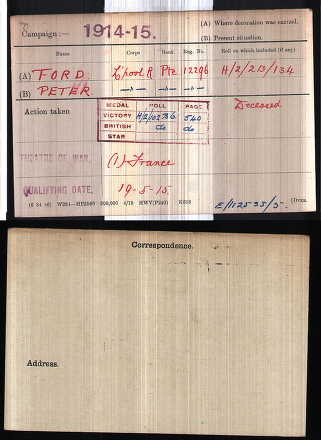 Campaign :— 1914-15.
(A) Where decoration was earned.
(B) Present situation.
Name Corps Rank Reg. No. Roll on which included (if any)
(A) FORD L'pool R Pte 12296 H/2/2B/134
(B) PETER —"— —"— —"—
Action taken
MEDAL ROLL PAGE
VICTORY H/2/102 B6 540
BRITISH do do
STAR
Deceased
THEATRE OF WAR. (1) France
QUALIFYING DATE. 19-5-15
(6 34 46) W234—HP5590 500,000 4/19 HWV(P240) K608
Correspondence.
Address.